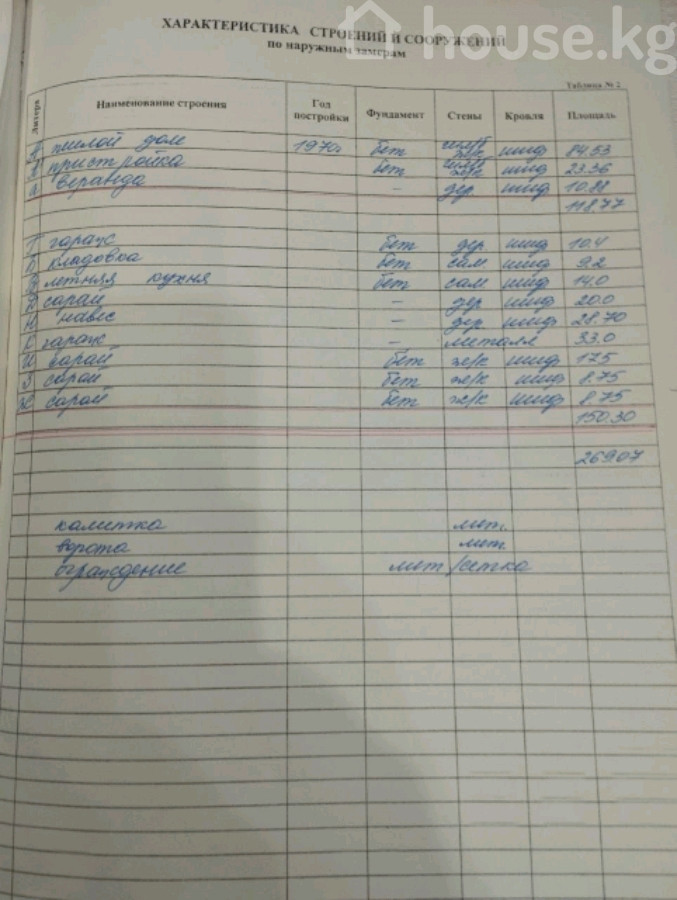 house.kg
ХАРАКТЕРИСТИКА СТРОЕНИЙ И СООРУЖЕНИЙ
по наружным замерам
Таблица № 2
Литера Наименование строения Год постройки Фундамент Стены Кровля Площадь
жилой дом 1970г бет ж/к шиф 84.53
пристройка бет ж/к шиф 23.36
а веранда – дер шиф 10.88
118.77
Г гараж бет дер шиф 10.4
Б кладовка бет сам. шиф 9.2
В летняя кухня бет сам. шиф 14.0
Д сарай – дер шиф 20.0
Н навес – дер. шиф 28.70
гараж – металл 33.0
И сарай бет ж/к шиф 17.5
сарай бет ж/к шиф 8.75
Ж сарай бет ж/к шиф 8.75
150.30
269.07
калитка мет.
ворота мет.
ограждение мет/сетка